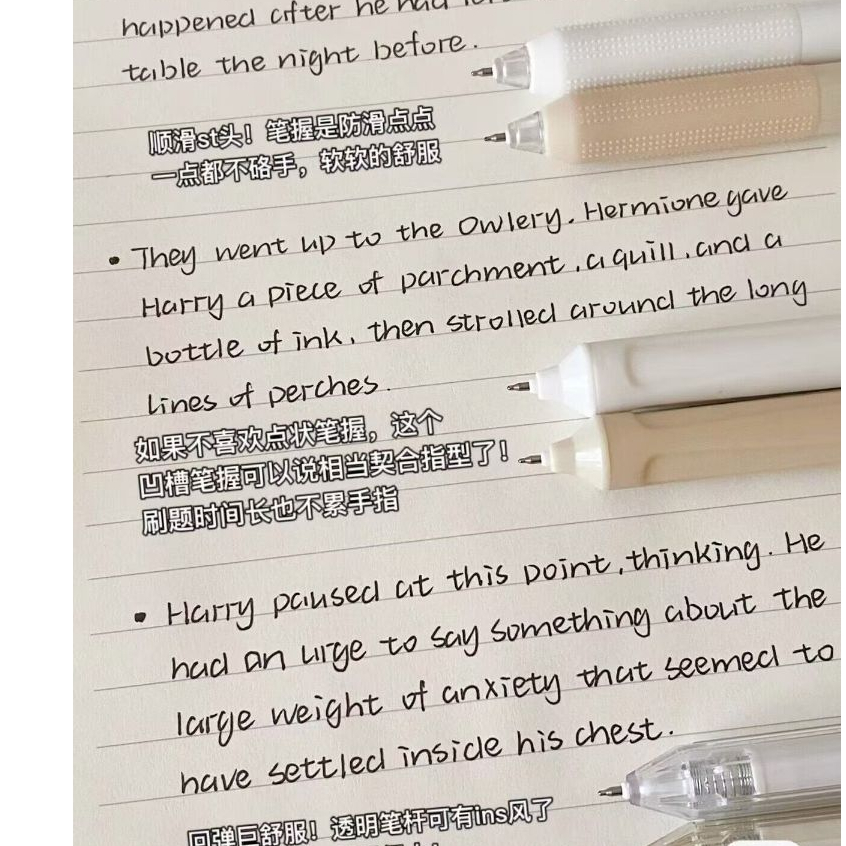 happened after he had
table the night before.
顺滑st头！笔握是防滑点点
一点都不硌手，软软的舒服
• They went up to the Owlery. Hermione gave
Harry a piece of parchment, a quill, and a
bottle of ink, then strolled around the long
lines of perches.
如果不喜欢点状笔握，这个
凹槽笔握可以说相当契合指型了！
刷题时间长也不累手指
• Harry paused at this point, thinking. He
had an urge to say something about the
large weight of anxiety that seemed to
have settled inside his chest.
回弹巨舒服！透明笔杆可有ins风了